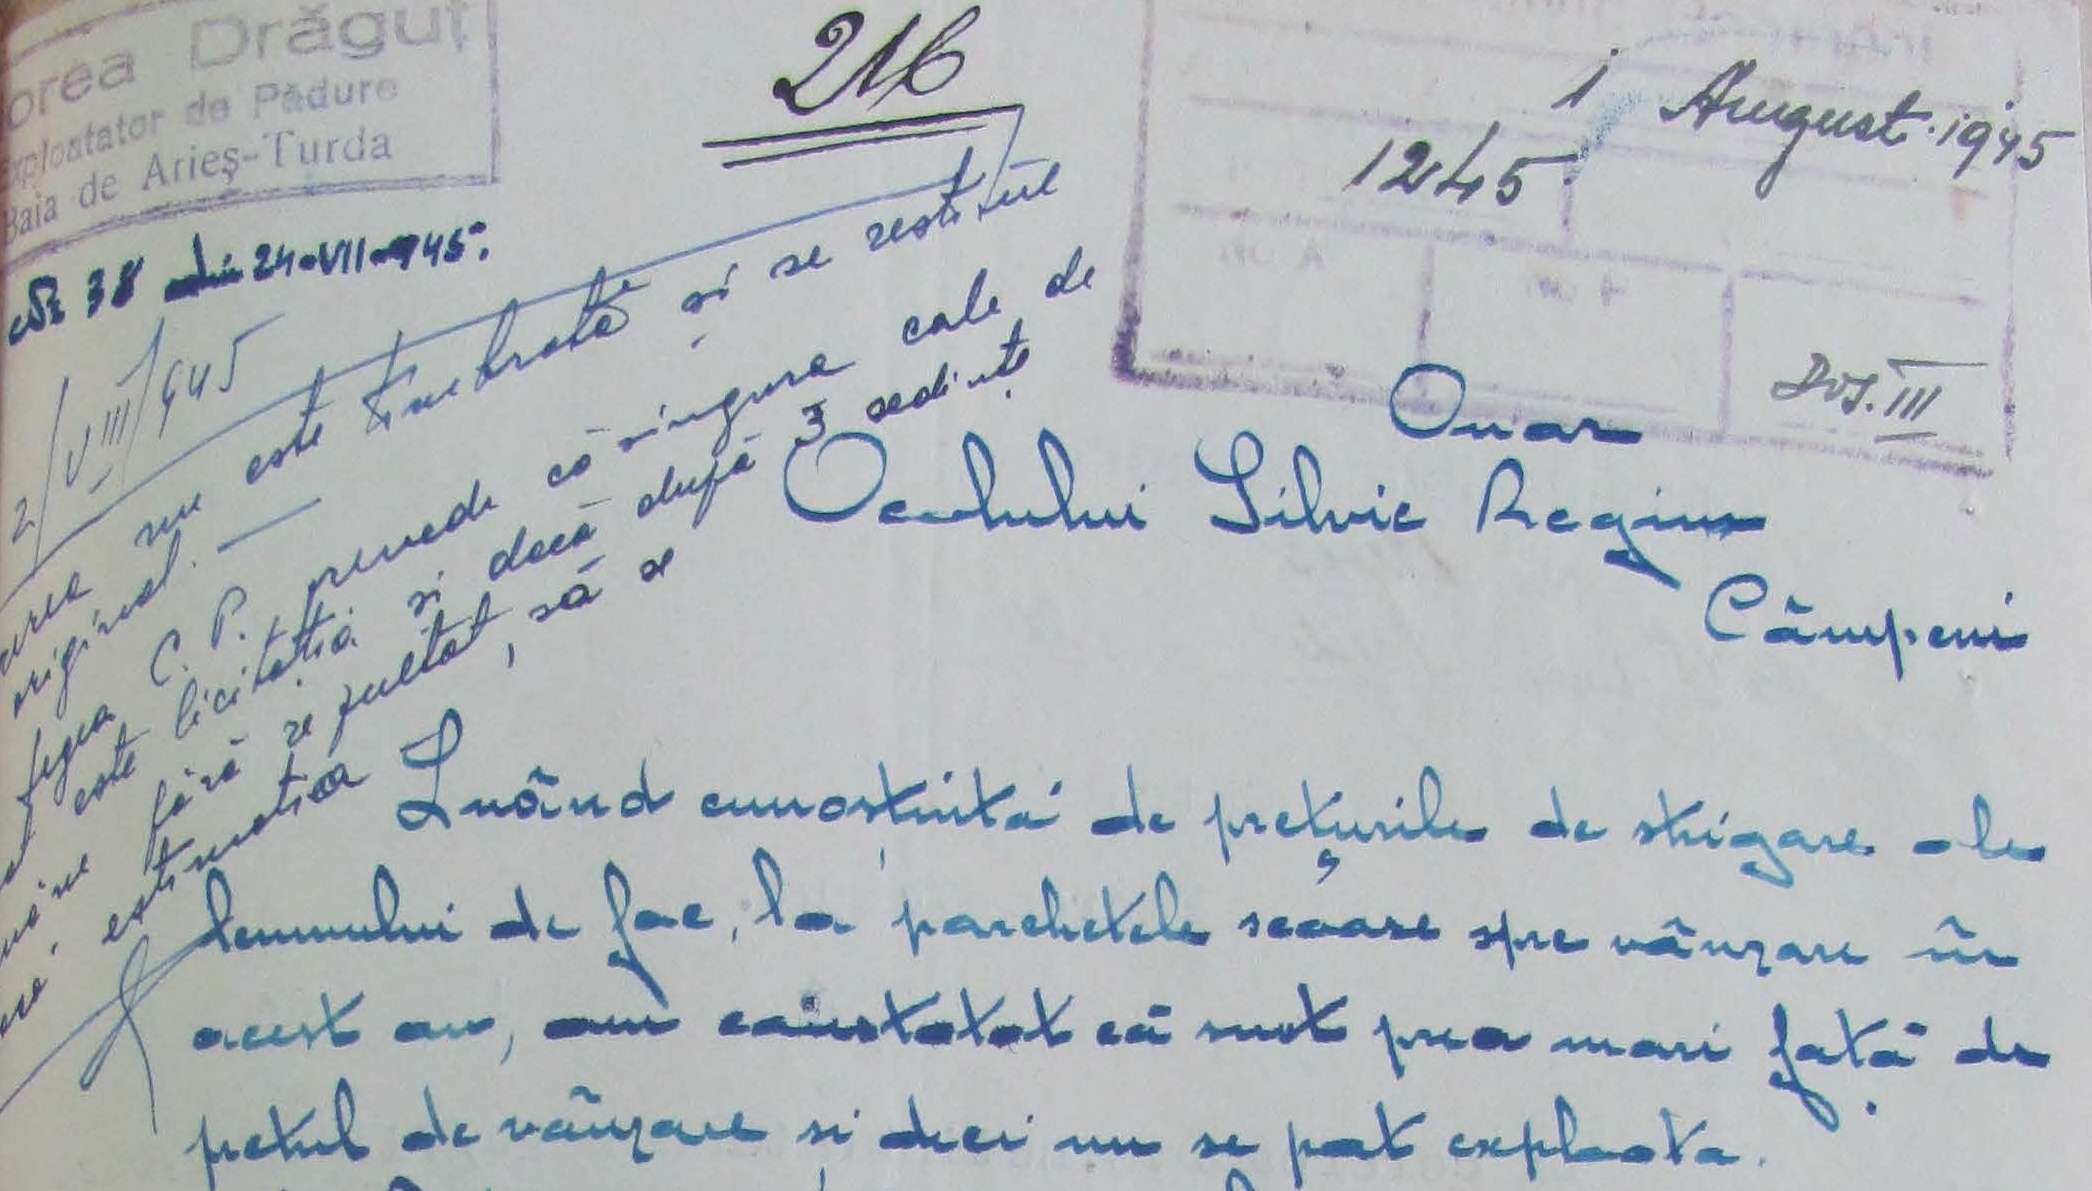 orea Drăguț
Exploatator de Pădure
Baia de Arieș-Turda
Nr 38 din 24-VII-945.
216
1 August 1945
1245
Dos. III
2/VIII/945
nu este timbrată și se restitue
original.
legea C. P. prevede că singura cale de
este licitația și dacă după 3 ședințe
fără rezultat, să se
estimația
Onor
Ocolului Silvic Regim
Câmpeni
Luând cunoștință de prețurile de strigare ale
lemnului de fag, la parchetele scoase spre vânzare în
acest an, am constatat că sunt prea mari față de
prețul de vânzare și deci nu se pot exploata.